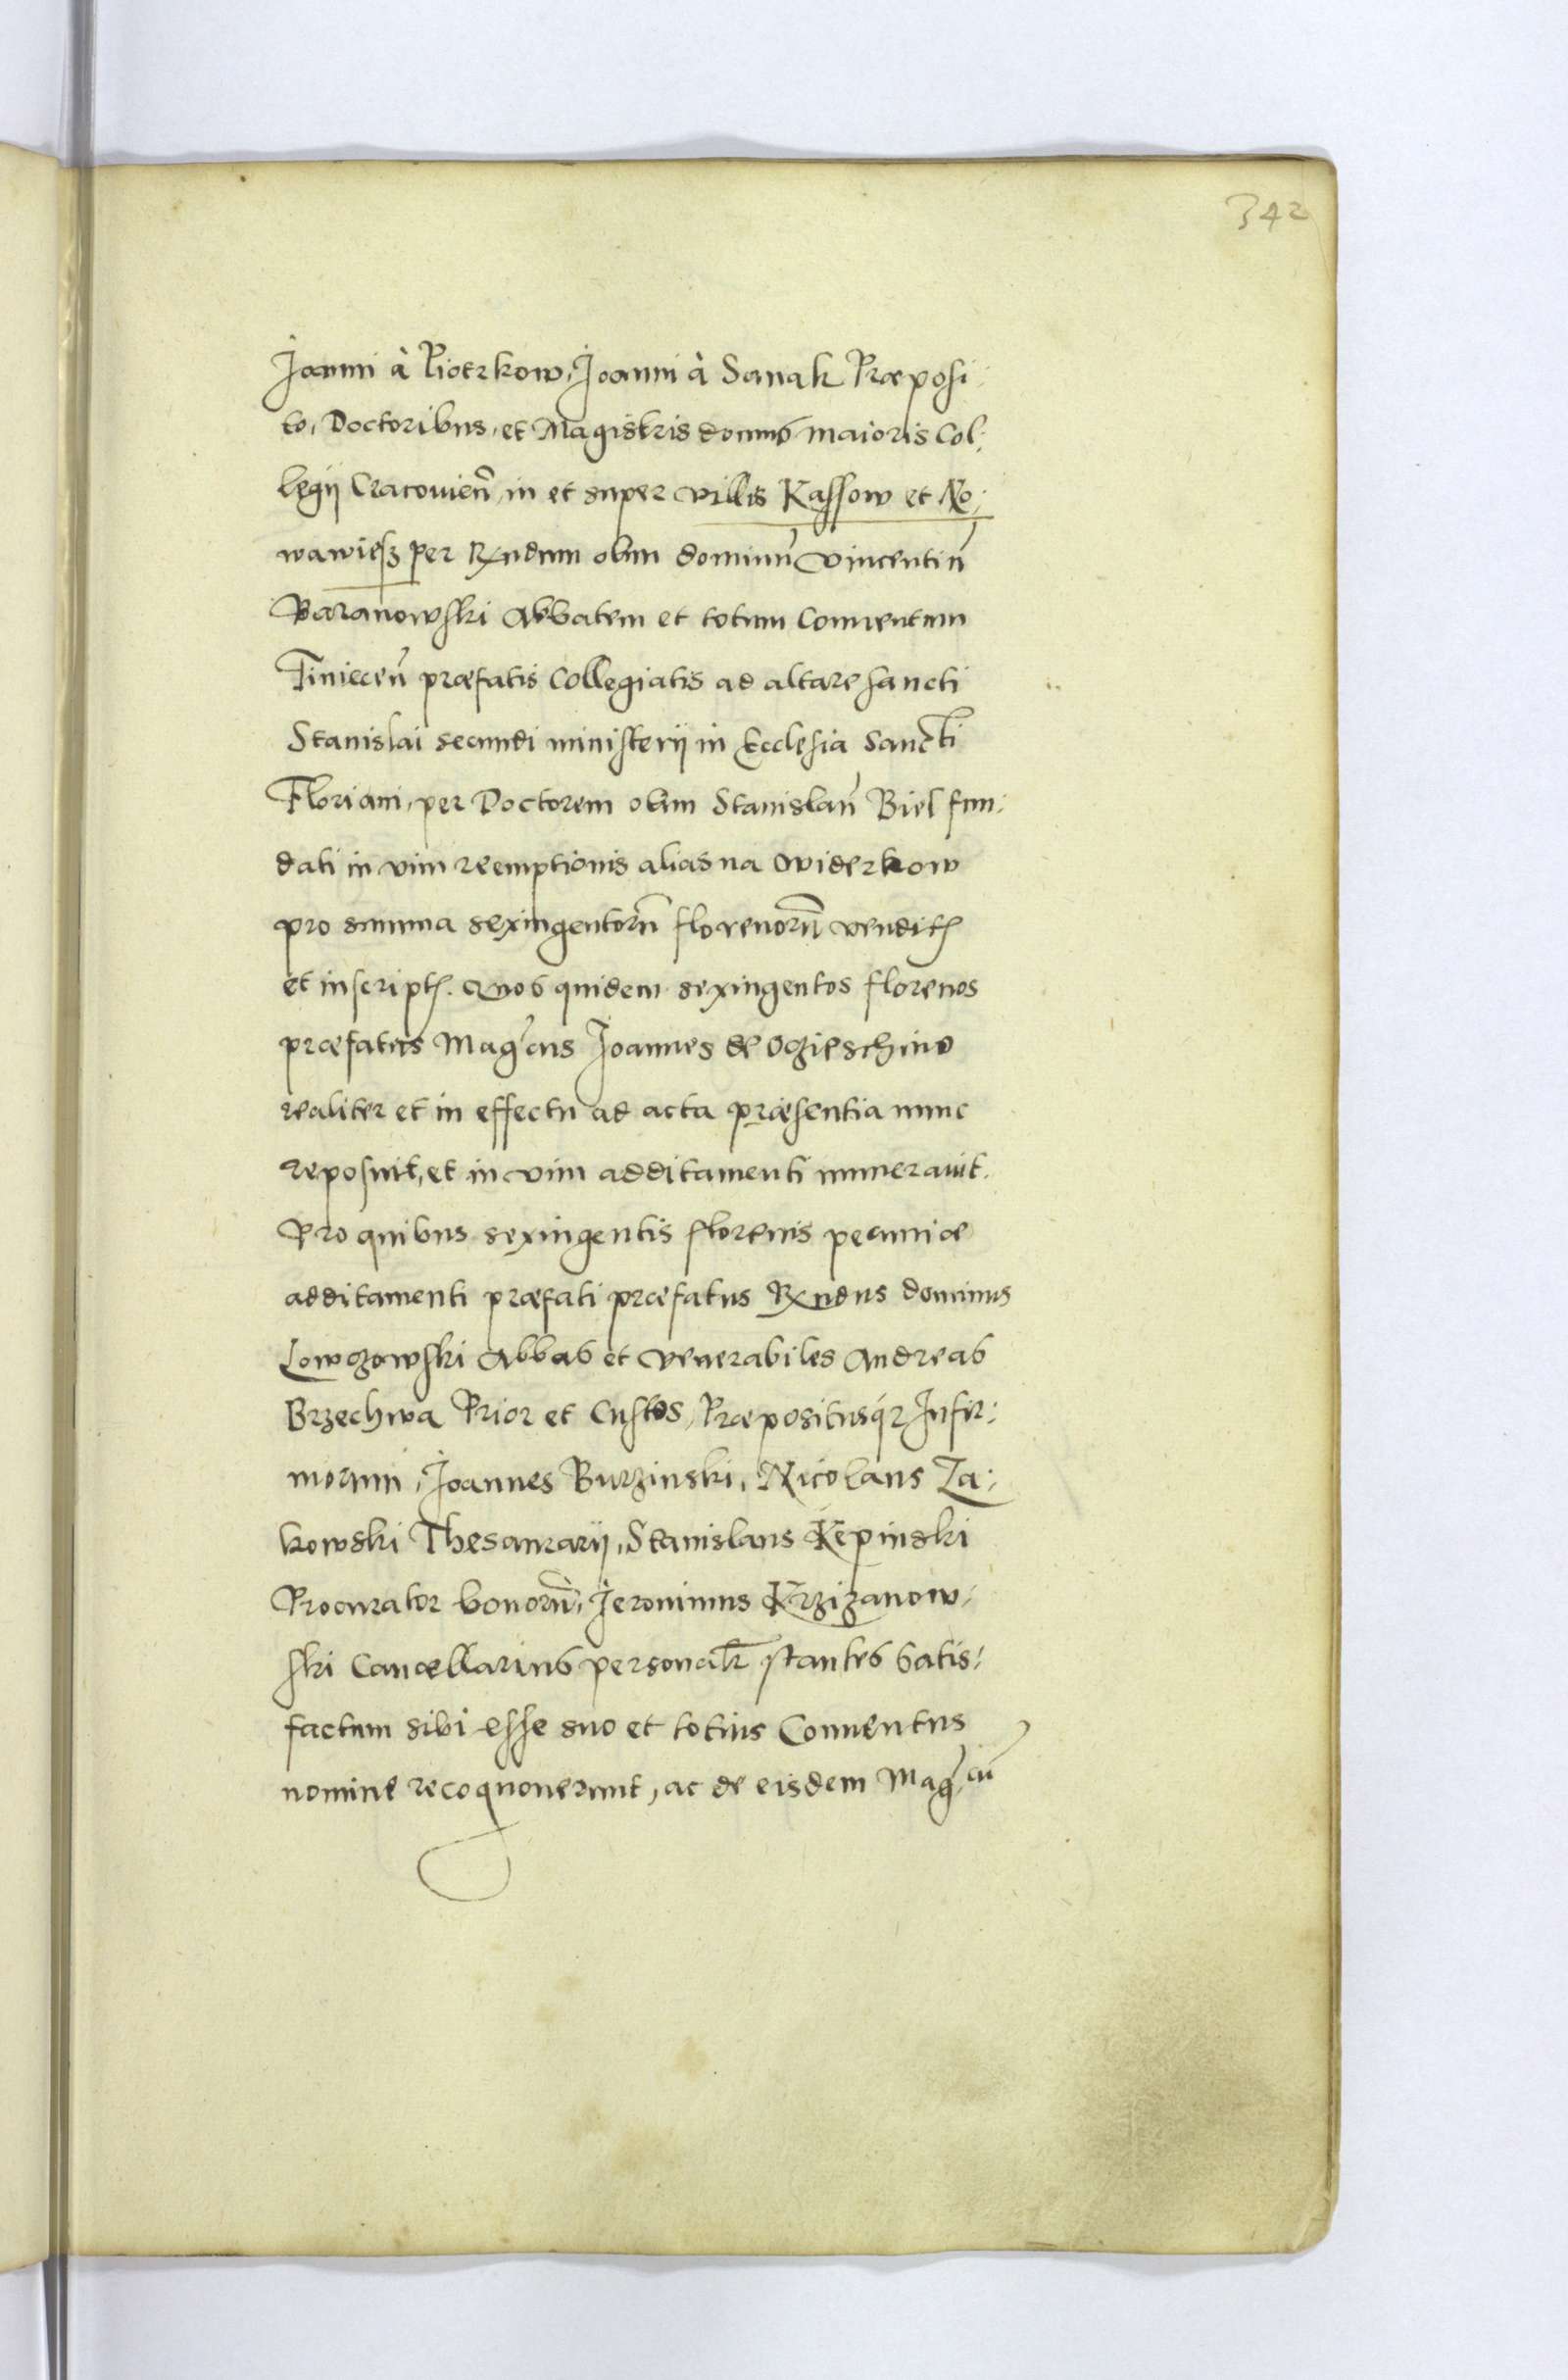 342
Joanni à Piotrkow, Joanni à Sanak Præposi:
to, Doctoribus, et Magistris domus maioris Col:
legij Cracouieñ, in et super villis Kassow et No:
wawiesz per Rxndum olim dominũ Vincentiũ
Baranowski Abbatem et totum Conuentum
Tinieceñ præfatis Collegiatis ad altare sancti
Stanislai secundi ministerij in Ecclesia Sancti
Floriani, per Doctorem olim Stanislaũ Biel fun:
dati in vim reemptionis alias na widerkow
pro summa sexingentorũ florenorũ vendit͛
et inscript͛. Quos quidem sexingentos florenos
præfatus Mag͛cus Joannes de Ogieschino
realiter et in effectu ad acta præsentia nunc
reposuit, et in vim additamenti numerauit.
Pro quibus sexingentis florenis pecuniæ
additamenti præfati præfatus Rxndus dominus
Lowczowski Abbas et venerabiles Andreas
Brzechwa Prior et Custos, Præpositusq3 Infir:
morum, Joannes Burzinski, Nicolaus Za:
kowski Thesaurarij, Stanislaus Kępinski
Procurator bonorũ, Jeronimus Krzizanow:
ski Cancellarius personalr̃ stantes satis:
factum sibi esse suo et totius Conuentus
nomine recognouerunt, ac de eisdem Mag͛cũ